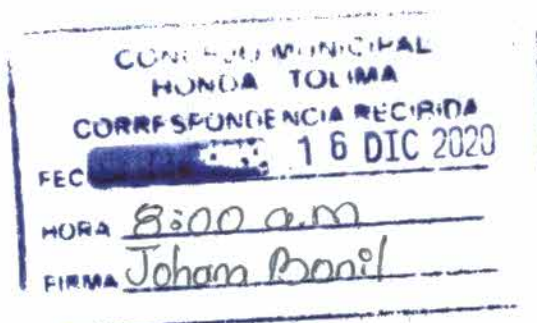 CONCEJO MUNICIPAL
HONDA TOLIMA
CORRESPONDENCIA RECIBIDA
FEC 16 DIC 2020
HORA 8:00 a.m
FIRMA Johana Bonil